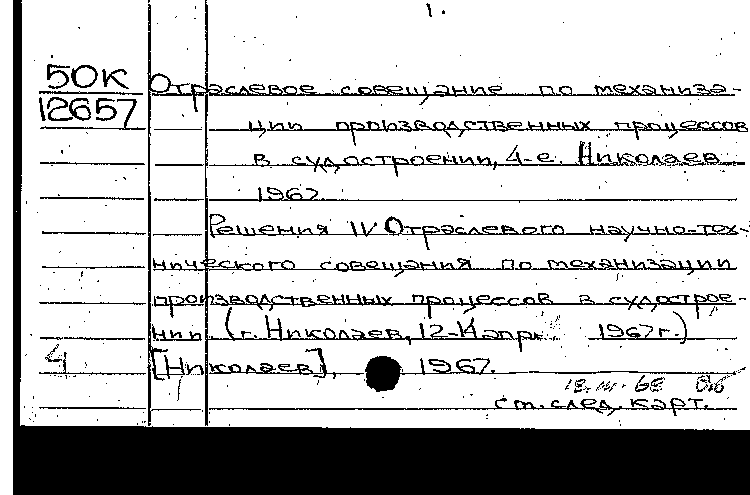 1.
50К
12657
Отраслевое совещание по механиза-
ции производственных процессов
в судостроении, 4-е. Николаев
1967.
Решения IV Отраслевого научно-тех-
нического совещания по механизации
производственных процессов в судострое-
нии (г. Николаев, 12-14 апр. 1967г.)
4 [Николаев], 1967.
18.III.68
см. след. карт.